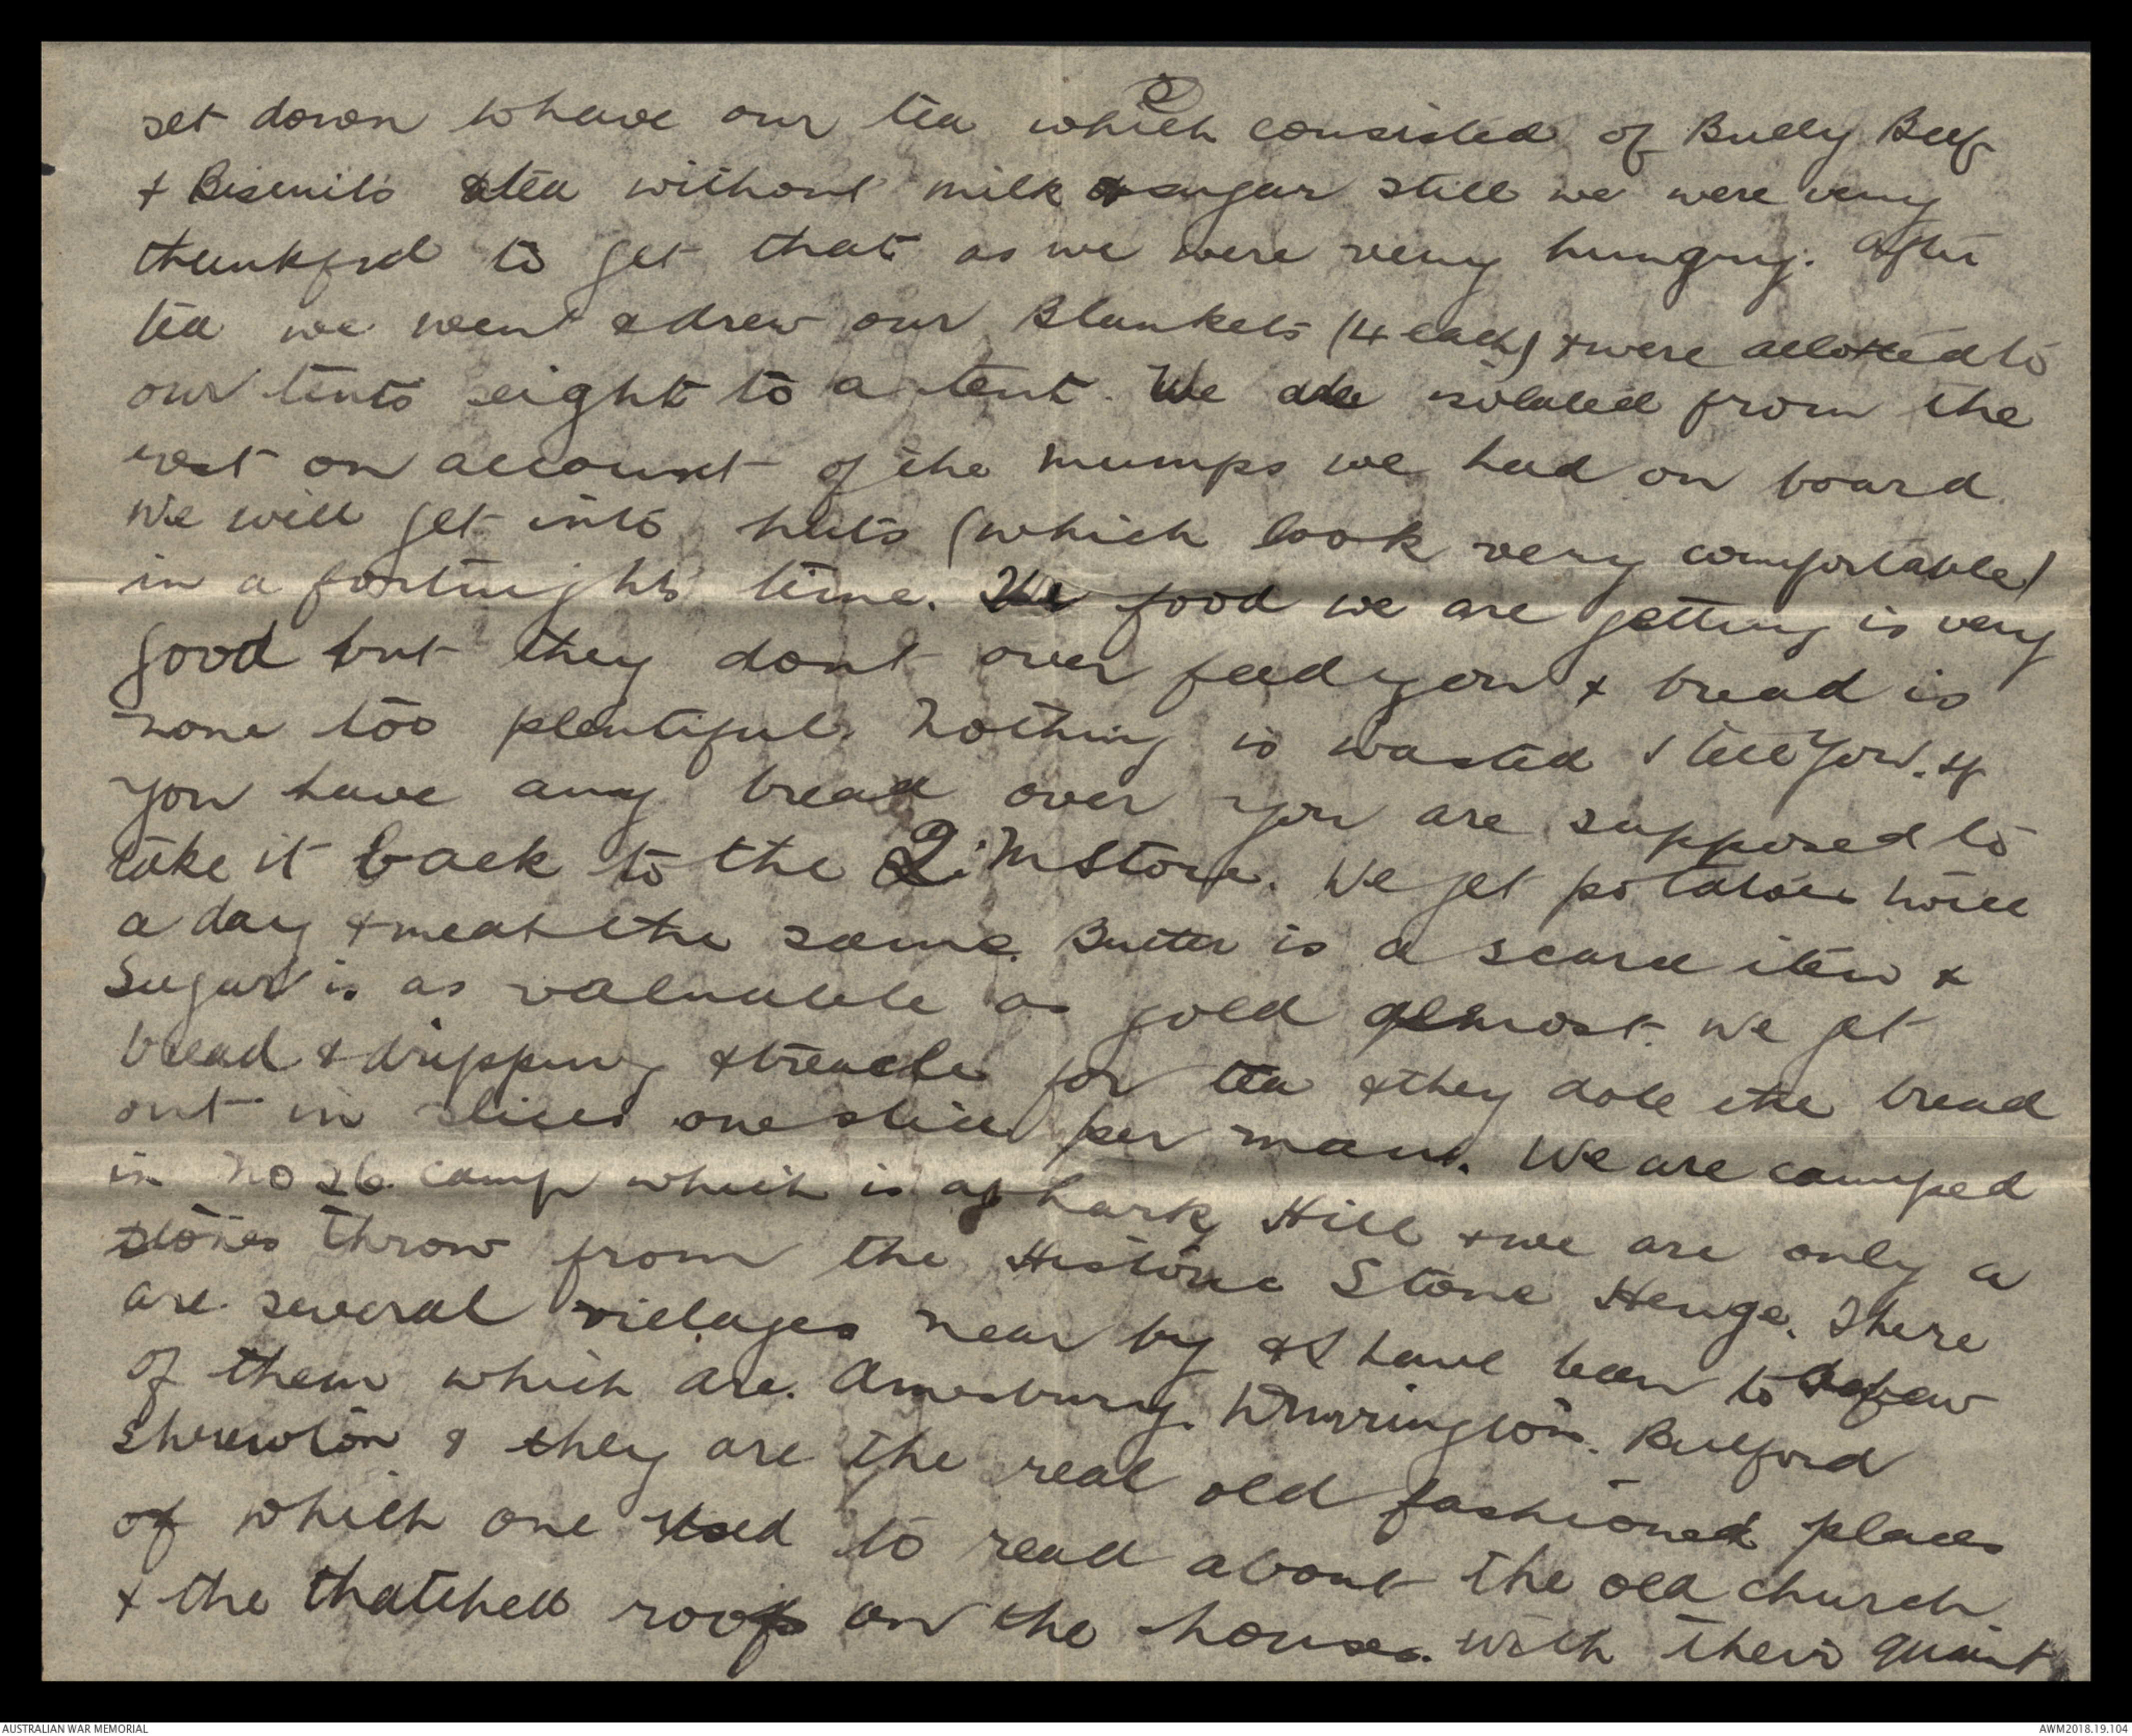 set down to have our tea which consisted of Bully Beef
+ Biscuits & tea without milk or sugar still we were very
thankful to get that as we were very hungry. After
tea we went & drew our Blankets (4 each) & were allotted to
our tents eight to a tent. We are isolated from the
rest on account of the mumps we had on board
We will get into huts (which look very comfortable)
in a fortnights time. The food we are getting is very
good but they dont over feed you + bread is
none too plentiful. Nothing is wasted I tell you. If
you have any bread over you are supposed to
take it back to the Q.M Store. We get potatoes twice
a day & meat the same. Butter is a scarce item &
Sugar is as valuable as gold almost. We get
bread & dripping & treacle for tea & they dole the bread
out in slices one slice per man. We are camped
in No 26 camp which is at Lark Hill & we are only a
stones throw from the Historic Stone Henge. There
are several villages near by & I have been to a few
of them which are. Amesbury. Durrington. Bulford
Shrewton & they are the real old fashioned places
of which one used to read about the old church
+ the thatched roofs on the houses. with their quaint
AUSTRALIAN WAR MEMORIAL
AWM2018.19.104